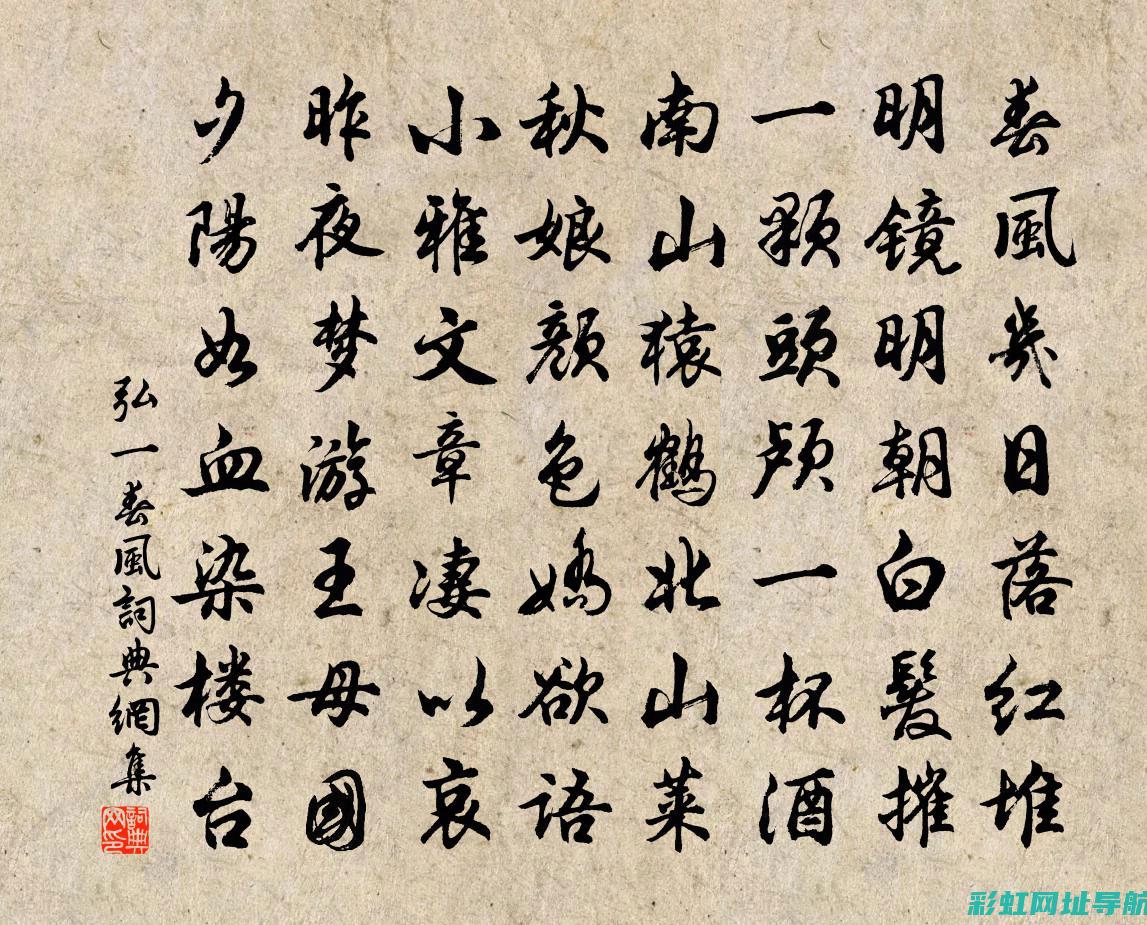 春風幾日落红堆
明镜明朝白髮摧
一顆頭颅一杯酒
南山猿鶴北山莱
秋娘顏色嬌欲语
小雅文章凄以哀
昨夜梦游王母國
夕陽如血染楼台
弘一春風詞典網集
詞典
网印
彩虹网址导航